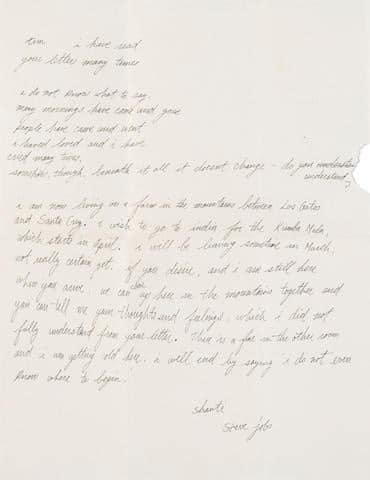 tim i have read
your letter many times
i do not know what to say.
many mornings have come and gone
people have came and went
i have loved and i have
cried many times.
somehow, though, beneath it all it doesn't change - do you
understand?
i am now living on a farm in the mountains between Los Gatos
and Santa Cruz. i wish to go to india for the Kumba Mela,
which starts in april. i will be leaving sometime in March,
not really certain yet. if you desire, and i am still here
when you arive, we can be up here in the mountains together and
you can tell me your thoughts and feelings, which i did not
fully understand from your letter. There is a fire in the other room
and i am getting cold here. i will end by saying i do not even
know where to begin.
shanti
steve jobs